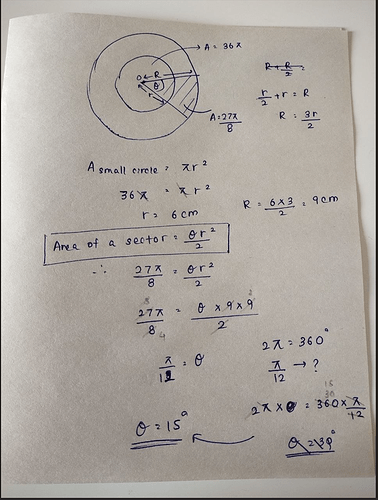 A = 36π
O
R
θ
r
A = 27π/8
R + R/2 =
r/2 + r = R
R = 3r/2
A small circle = πr²
36π = πr²
r = 6cm
R = 6×3/2 = 9cm
Area of a sector = θr²/2
∴ 27π/8 = θr²/2
27π/8 = θ × 9 × 9/2
π/12 = θ
2π = 360°
π/12 → ?
2π × θ = 360 × π/12
θ = 30°
θ = 15°